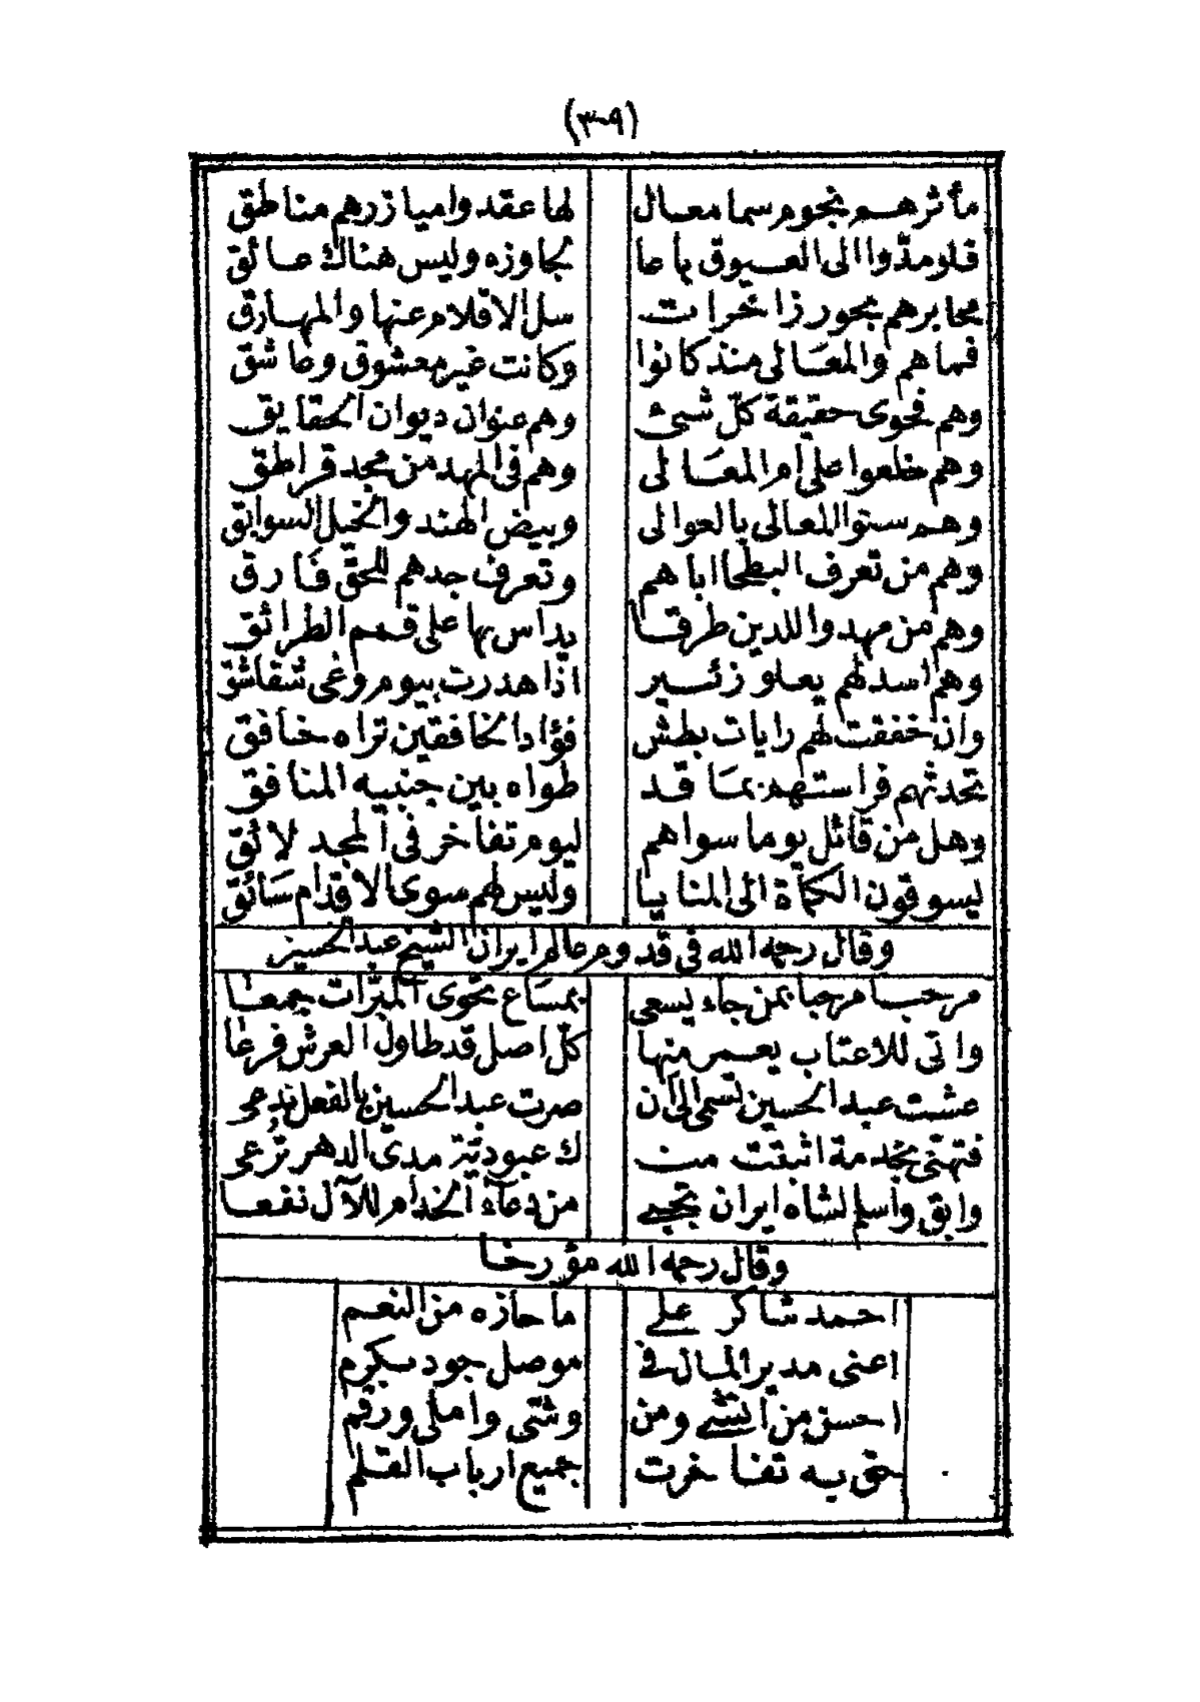 (٣٠٩)
مأثرهم نجوم سما معال لها عقد واميازرهم مناطق
فلو مدّوا الى العيوق باعا لجاوزه وليس هناك عائق
محابرهم بحور زاخرات سل الاقلام عنها والمهارق
فهاهم والمعالى منذ كانوا وكانت غير معشوق وعاشق
وهم فحوى حقيقة كلّ شيئ وهم عنوان ديوان الحقايق
وهم خلعوا على ام المعالى وهم فى المهد من مجد قراطق
وهم سنوا المعالى بالعوالى وبيض الهند والخيل السوابق
وهم من تعرف البطحا اباهم وتعرف جدهم للحقّ فارق
وهم من مهدوا للدين طرقا يداس بها على قمم الطرائق
وهم اسد لهم يعلو زئير اذا هدرت بيوم وغى شقاشق
وان خفقت لهم رايات بطش فؤاد الخافقين تراه خافق
تحدثهم فراستهم بما قد طواه بين جنبيه المنافق
وهل من قائل يوما سواهم ليوم تفاخر فى المجد لائق
يسوقون الكمأة الى المنايا وليس لهم سوى الاقدام سائق
وقال رحمه الله فى قدوم عالم ايران الشيخ عبد الحسين
مرحبا مرحبا بمن جاء يسعى بمساع تحوى المبرّات جمعا
واتى للاعتاب يعمر منها كلّ اصل قد طاول العرش فرعا
عشت عبد الحسين تسمى الى ان صرت عبد الحسين بالفعل تدعى
فتهنّى بخدمة اثبتت منـ ك عبودية مدى الدهر ترعى
وابق واسلم لشاه ايران تجبى من دعاء الخدام للآل نفعا
وقال رحمه الله مؤرخا
احمد شاكر على ما حازه من النعم
اعنى مدير المال فى موصل جود وكرم
احسن من انشى ومن وشّى واملى ورقم
حتى به تفاخرت جميع ارباب القلم